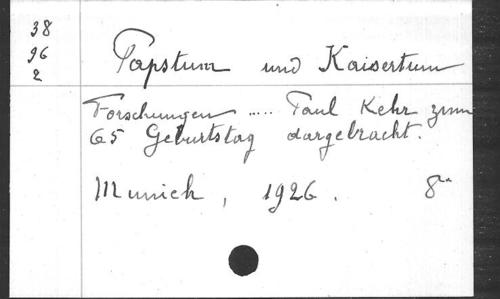 38
96
2
Papstum und Kaisertum
Forschungen ..... Paul Kehr zum
65 Geburtstag dargebracht.
Munich, 1926. 8°